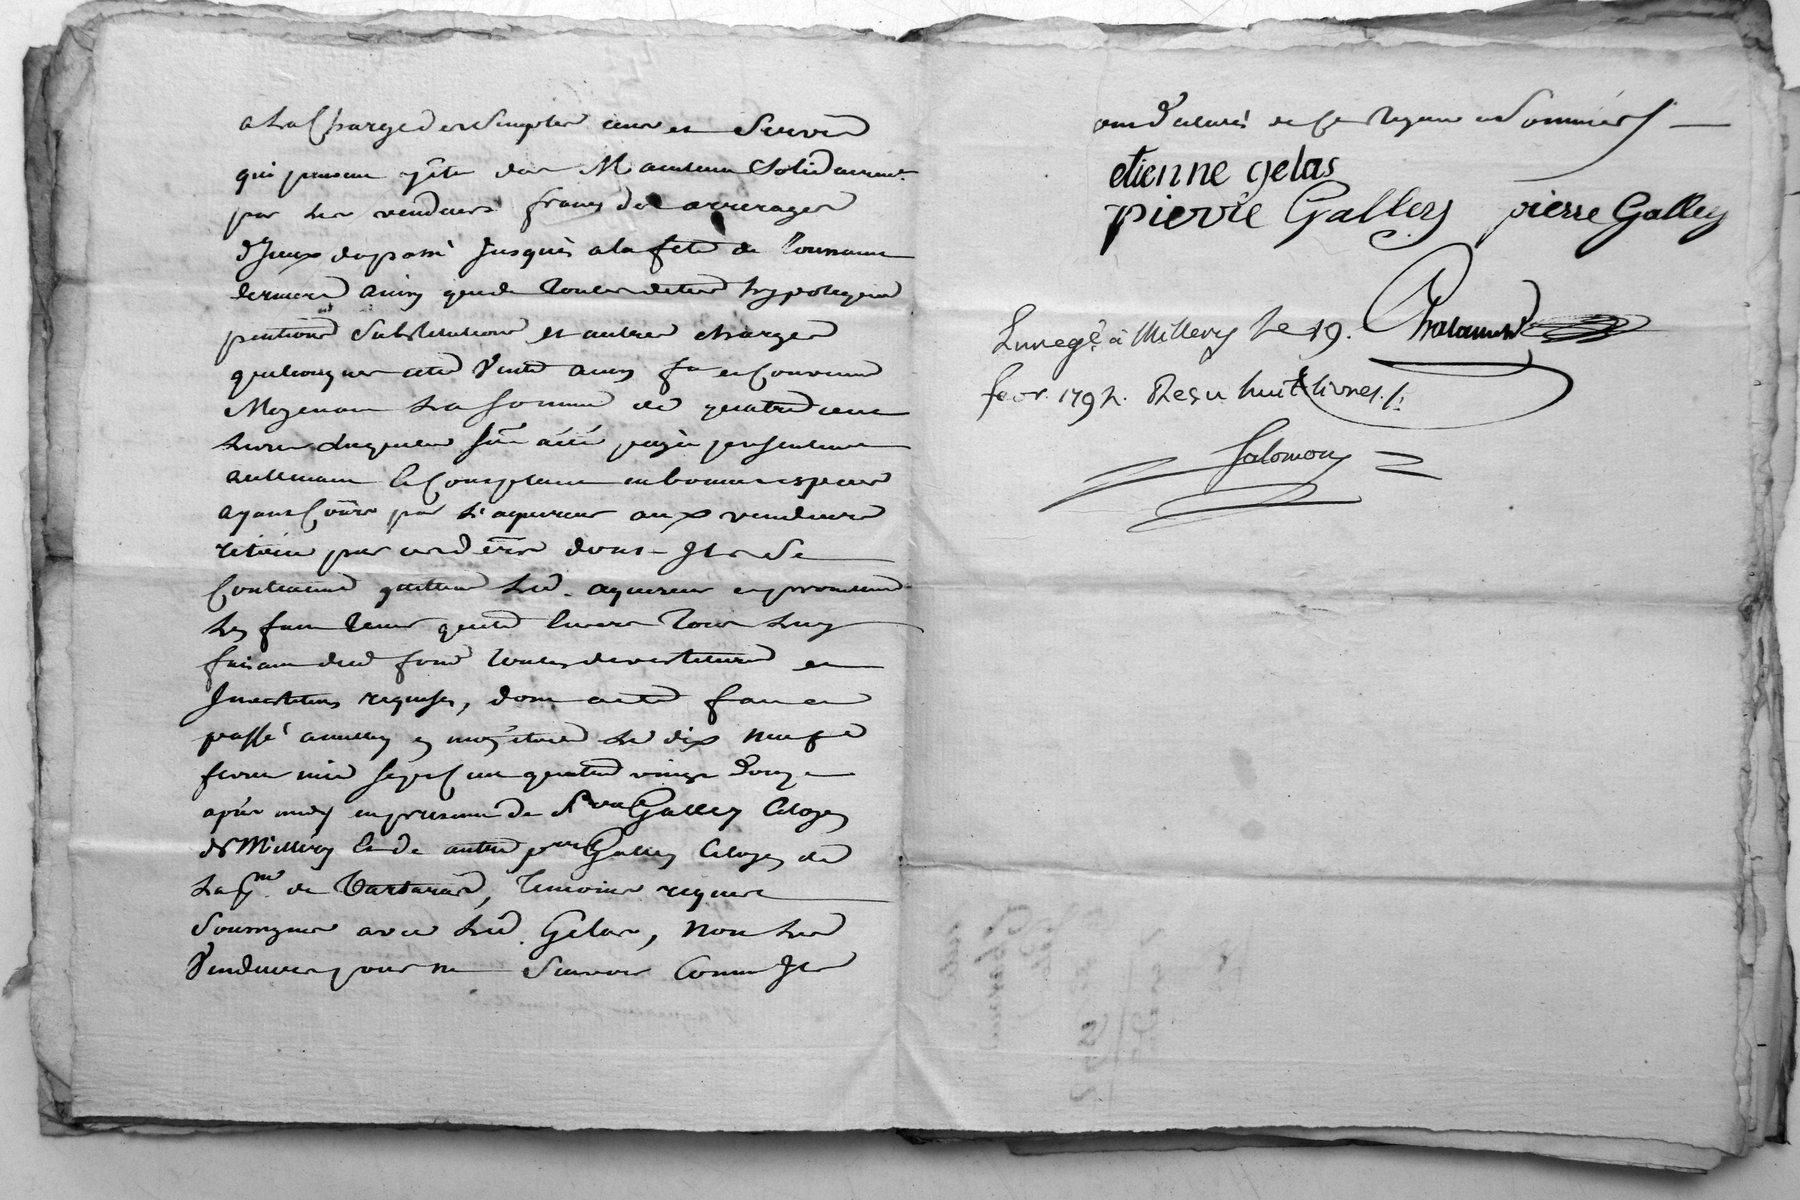 a la Charge des simples cens et Servis
qui peuvent être dus Maintenus Solidairement
par les vendeurs francs des arrerages
d'Iceux du passé Jusques a la fête de Toussaint
derniere ainsy que de toutes dettes hypoteques
pentions Substitutions et autres charges
quelconques cette Vente ainsy f. et Convenue
Moyenant la somme de quatre cent
livres laquelle a été payée presentement
réellement Comptant en bonnes especes
ayant Cours par l'aquereur aux vendeurs
retirée par ces d. dont Ils se
Contentent quittent led. aquereur et promettent
les faire tenir quitte envers tous luy
faisant dud. fond toutes devestitures et
Investitures requises, dont acte fait et
passé a Millery en mon étude le dix neuf
fevrier mil sept cent quatre vingt douze
après midy en presence de Sr Galley Citoyen
de Millery et de autre pierre Galley Citoyen de
la de Tartaras, temoins requis
Soussignés avec led. Gelas, non les
Vendeurs pour ne Scavoir Comme Ils
ont declaré de ce Requis et Sommés
etienne gelas
pierre Galley pierre Galley
Enregé. à Millery le 19.
fevr. 1792. Reçu huit livres
Salomon